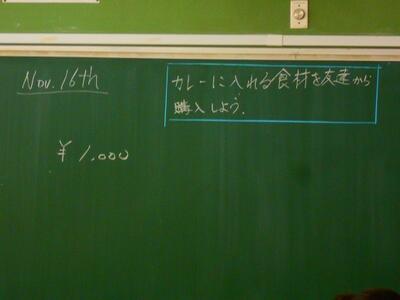 Nov. 16th
カレーに入れる食材を友達から
購入しよう.
¥1,000